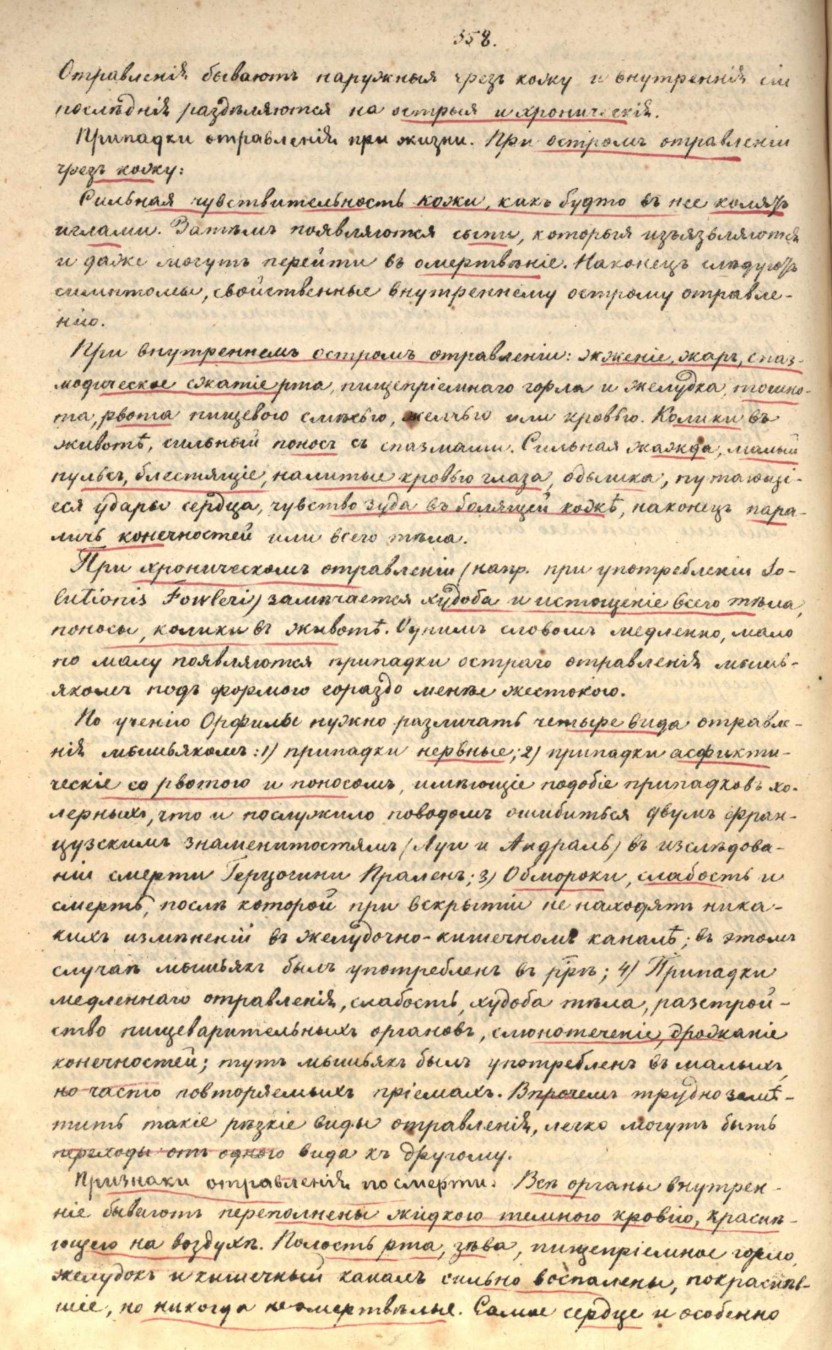 358.
Отравленія бываютъ наружныя чрезъ кожу и внутреннія сіи
послѣднія раздѣляются на острыя и хроническія.
Припадки отравленія при жизни. При остромъ отравленіи
чрезъ кожу:
Сильная чувствительность кожи, какъ будто въ нее колятъ
иглами. Затѣмъ появляются сыпи, которыя изъязвляются
и даже могутъ перейти въ омертвѣніе. Наконецъ слѣдуютъ
симптомы, свойственные внутреннему острому отравле-
нію.
При внутреннемъ остромъ отравленіи: жженіе, жаръ, спаз-
модическое сжатіе рта, пищепріемнаго горла и желудка, тошно-
та, рвота пищевою смѣсью, желчью или кровью. Колики въ
животѣ, сильный поносъ съ спазмами. Сильная жажда, малый
пульсъ, блестящіе, налитые кровью глаза, одышка, путающі-
еся удары сердца, чувство зуда въ болящей кожѣ, наконецъ пара-
личъ конечностей или всего тѣла.
При хроническомъ отравленіи (напр. при употребленіи So-
lutionis Fowleri) замѣчается худоба и истощеніе всего тѣла,
поносы, колики въ животѣ. Однимъ словомъ медленно, мало
по малу появляются припадки остраго отравленія мышь-
якомъ подъ формою гораздо менѣе жестокою.
По ученію Орфилы нужно различать четыре вида отравле-
нія мышьякомъ: 1) припадки нервные; 2) припадки асфикти-
ческіе со рвотою и поносомъ, имѣющіе подобіе припадковъ хо-
лерныхъ, что и послужило поводомъ ошибиться двумъ фран-
цузскимъ знаменитостямъ (Луи и Андраль) въ изслѣдова-
ніи смерти Герцогини Праленъ; 3) Обмороки, слабость и
смерть, послѣ которой при вскрытіи не находятъ ника-
кихъ измѣненій въ желудочно-кишечномъ каналѣ; въ этомъ
случаѣ мышьякъ былъ употребленъ въ ; 4) Припадки
медленнаго отравленія, слабость, худоба тѣла, разстрой-
ство пищеварительныхъ органовъ, слюнотеченіе, дрожаніе
конечностей; тутъ мышьякъ былъ употребленъ въ малыхъ,
но часто повторяемыхъ пріемахъ. Впрочемъ трудно замѣ-
тить такіе рѣзкіе виды отравленія, легко могутъ быть
переходы отъ одного вида къ другому.
Признаки отравленія по смерти. Всѣ органы внутрен-
ніе бываютъ переполнены жидкою темною кровію, краснѣ-
ющею на воздухѣ. Полость рта, зѣва, пищепріемное горло,
желудокъ и кишечный каналъ сильно воспалены, покраснѣв-
шіе, но никогда не омертвѣлые. Самое сердце и особенно